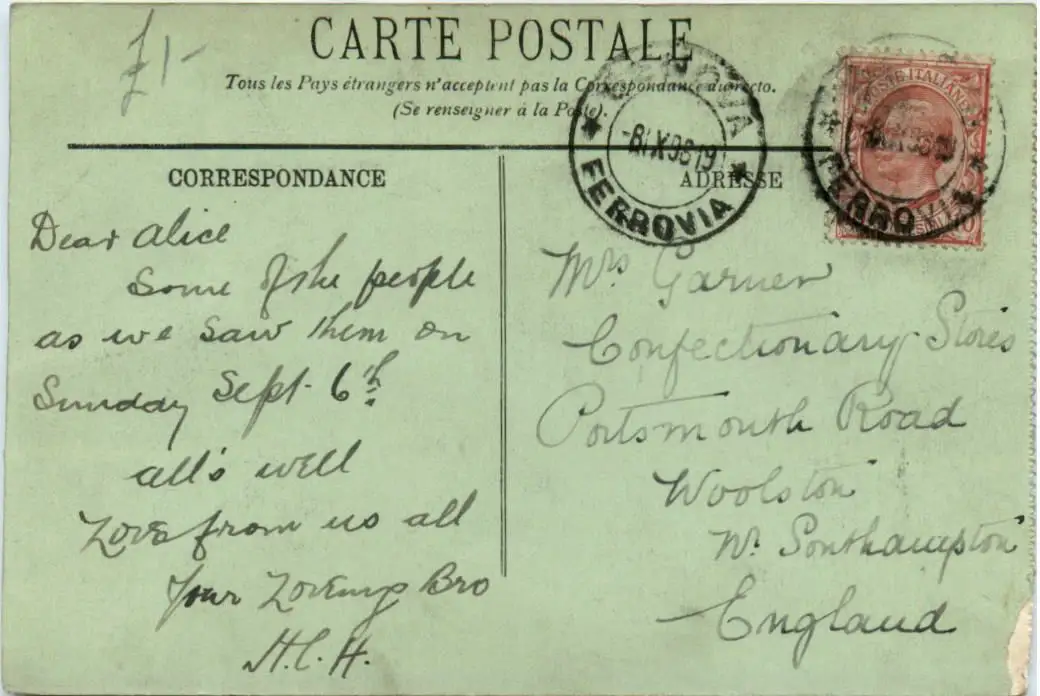 £1-
CARTE POSTALE
Tous les Pays étrangers n'acceptent pas la Correspondance au recto.
(Se renseigner à la Poste).
FERROVIA
POSTE ITALIANE
FERROVIA
CORRESPONDANCE
ADRESSE
Dear Alice
Some of the people
as we saw them on
Sunday Sept. 6th
all's well
Love from us all
Your Loving Bro
H.C.H.
Mrs Garner
Confectionary Stores
Portsmouth Road
Woolston
Nr. Southampton
England